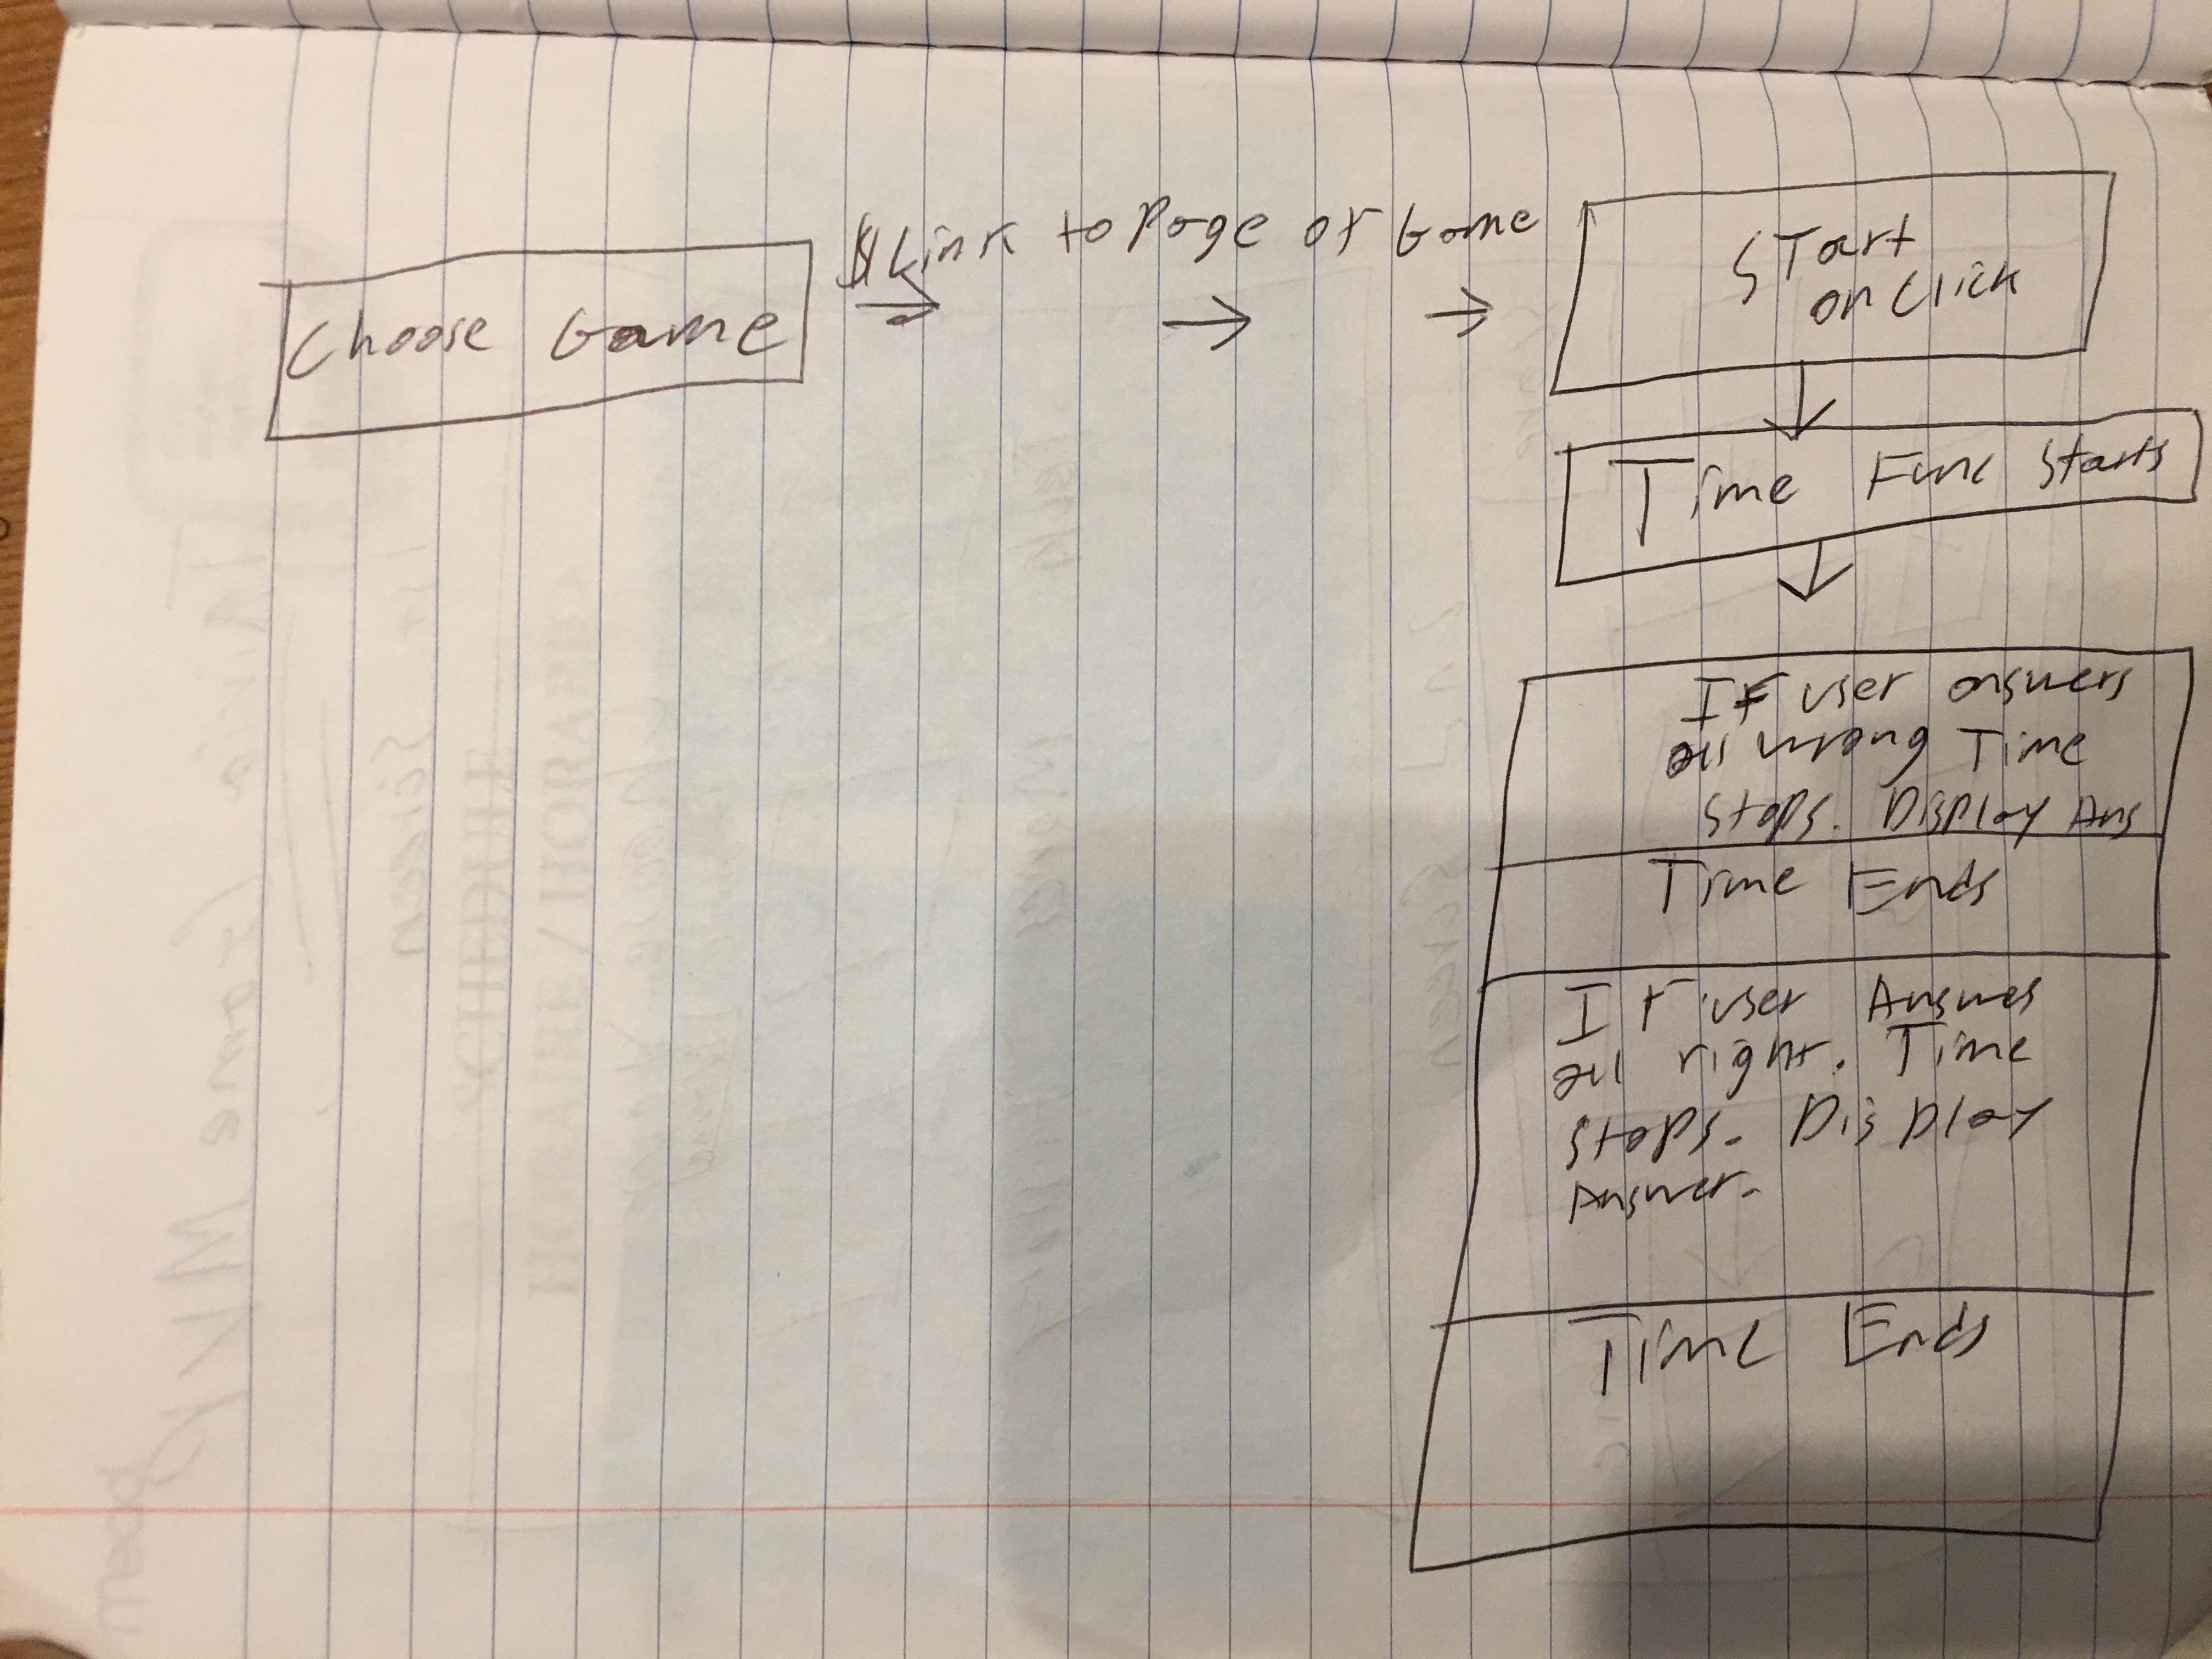 Choose Game
Link to Page of Game
Start
onclick
Time Func Starts
If user answers
all wrong Time
stops. Display Ans
Time Ends
If user Answes
all right. Time
stops. Display
Answer.
Time Ends
SCHEDULE
HORAIRE / HORARIO